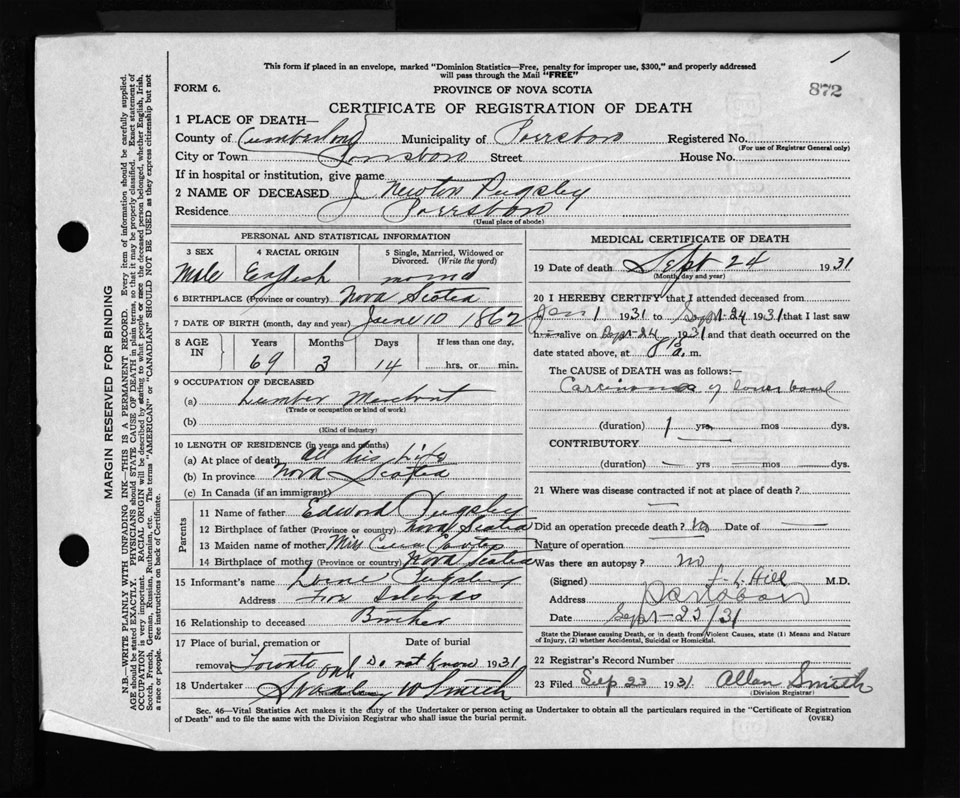 This form if placed in an envelope, marked "Dominion Statistics—Free, penalty for improper use, $300," and properly addressed
will pass through the Mail "FREE"
872
FORM 6.
PROVINCE OF NOVA SCOTIA
CERTIFICATE OF REGISTRATION OF DEATH
1 PLACE OF DEATH—
County of Cumberland Municipality of Parrsboro Registered No.
(For use of Registrar General only)
City or Town Parrsboro Street House No.
If in hospital or institution, give name
2 NAME OF DECEASED J Newton Pugsley
Residence Parrsboro
(Usual place of abode)
PERSONAL AND STATISTICAL INFORMATION
3 SEX 4 RACIAL ORIGIN 5 Single, Married, Widowed or
Divorced. (Write the word)
Male English
6 BIRTHPLACE (Province or country) Nova Scotia
7 DATE OF BIRTH (month, day and year) June 10 1862
8 AGE IN Years Months Days If less than one day,
69 3 14 hrs. or min.
9 OCCUPATION OF DECEASED
(a) Lumber Merchant
(Trade or occupation or kind of work)
(b)
(Kind of industry)
10 LENGTH OF RESIDENCE (in years and months)
(a) At place of death all his life
(b) In province Nova Scotia
(c) In Canada (if an immigrant)
Parents
11 Name of father Edward Pugsley
12 Birthplace of father (Province or country) Nova Scotia
13 Maiden name of mother Miss
14 Birthplace of mother (Province or country) Nova Scotia
15 Informant's name Pugsley
Address Five Islands
16 Relationship to deceased Brother
17 Place of burial, cremation or Date of burial
removal Toronto Ont Do not Know 1931
18 Undertaker W Smith
MEDICAL CERTIFICATE OF DEATH
19 Date of death Sept 24 1931
(Month, day and year)
20 I HEREBY CERTIFY that I attended deceased from
Jan 1 1931 to Sept-24 1931 that I last saw
h alive on Sept-24 1931 and that death occurred on
date stated above, at 8 a. m.
The CAUSE OF DEATH was as follows:—
Carcinoma of lower bowel
(duration) 1 yrs. mos. dys.
CONTRIBUTORY
(duration) yrs mos dys.
21 Where was disease contracted if not at place of death?
Did an operation precede death? No Date of
Nature of operation
Was there an autopsy? no
(Signed) Hill M.D.
Address Parrsboro
Date Sept-25/31
State the Disease causing Death, or in death from Violent Causes, state (1) Means and Nature
of Injury, (2) whether Accidental, Suicidal or Homicidal.
22 Registrar's Record Number
23 Filed Sep 23 1931 Allan Smith
(Division Registrar)
Sec. 46—Vital Statistics Act makes it the duty of the Undertaker or person acting as Undertaker to obtain all the particulars required in the "Certificate of Registration
of Death" and to file the same with the Division Registrar who shall issue the burial permit.
(OVER)
MARGIN RESERVED FOR BINDING
N.B.—WRITE PLAINLY WITH UNFADING INK—THIS IS A PERMANENT RECORD. Every item of information should be carefully supplied.
AGE should be stated EXACTLY. PHYSICIANS should STATE CAUSE OF DEATH in plain terms, so that it may be properly classified. Exact statement of
OCCUPATION is very important. RACIAL ORIGIN will be described by stating to what people or race the deceased person belonged, whether English, Irish,
Scotch, French, German, Russian, Ruthenian, etc. The terms "AMERICAN" or "CANADIAN" SHOULD NOT BE USED as they express citizenship but not
a race or people. See instructions on back of Certificate.